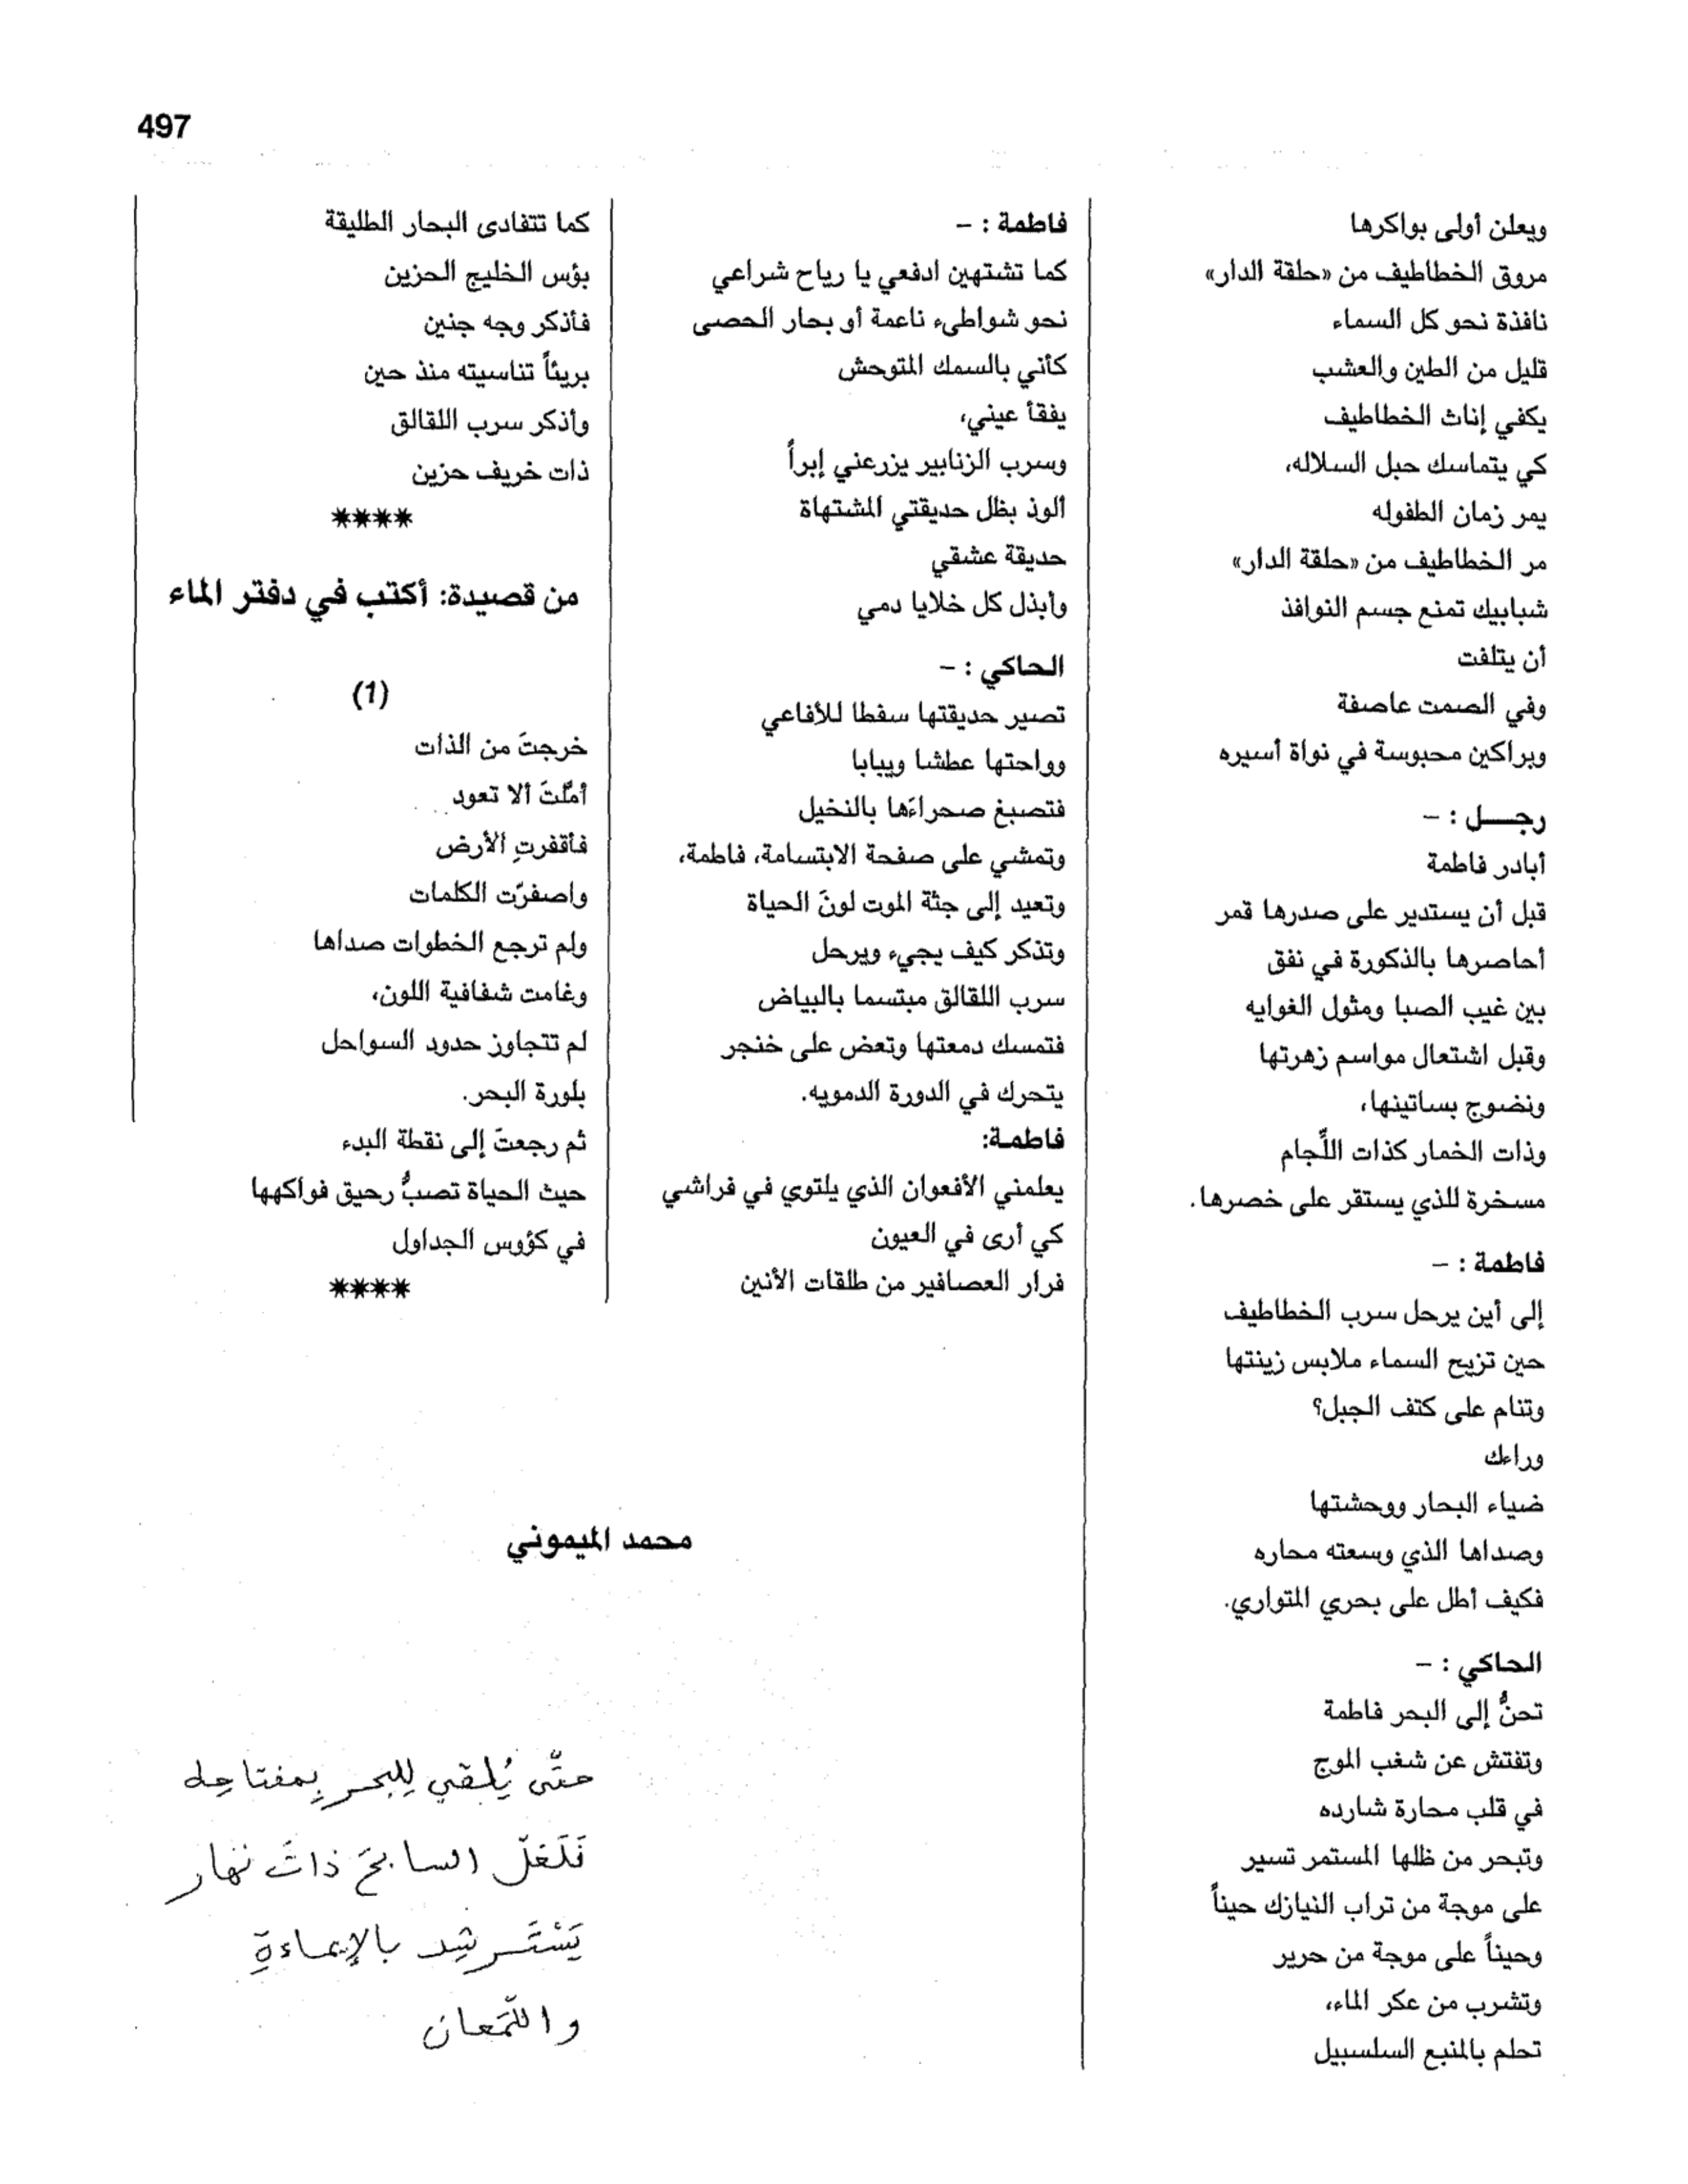 497
ويعلن أولى بواكرها
مروق الخطاطيف من «حلقة الدار»
نافذة نحو كل السماء
قليل من الطين والعشب
يكفي إناث الخطاطيف
كي يتماسك حبل السلاله،
يمر زمان الطفوله
مر الخطاطيف من «حلقة الدار»
شبابيك تمنع جسم النوافذ
أن يتلفت
وفي الصمت عاصفة
وبراكين محبوسة في نواة أسيره
رجــــل : –
أبادر فاطمة
قبل أن يستدير على صدرها قمر
أحاصرها بالذكورة في نفق
بين غيب الصبا ومثول الغوايه
وقبل اشتعال مواسم زهرتها
ونضوج بساتينها،
وذات الخمار كذات اللّجام
مسخرة للذي يستقر على خصرها.
فاطمة : –
إلى أين يرحل سرب الخطاطيف
حين تزيح السماء ملابس زينتها
وتنام على كتف الجبل؟
وراءك
ضياء البحار ووحشتها
وصداها الذي وسعته محاره
فكيف أطل على بحري المتواري.
الحاكي : –
تحنُّ إلى البحر فاطمة
وتفتش عن شغب الموج
في قلب محارة شارده
وتبحر من ظلها المستمر تسير
على موجة من تراب النيازك حيناً
وحيناً على موجة من حرير
وتشرب من عكر الماء،
تحلم بالمنبع السلسبيل
فاطمة : –
كما تشتهين ادفعي يا رياح شراعي
نحو شواطىء ناعمة أو بحار الحصى
كأني بالسمك المتوحش
يفقأ عيني،
وسرب الزنابير يزرعني إبراً
ألوذ بظل حديقتي المشتهاة
حديقة عشقي
وأبذل كل خلايا دمي
الحاكي : –
تصير حديقتها سفطا للأفاعي
وواحتها عطشا ويبابا
فتصبغ صحراءَها بالنخيل
وتمشي على صفحة الابتسامة، فاطمة،
وتعيد إلى جثة الموت لونَ الحياة
وتذكر كيف يجيء ويرحل
سرب اللقالق مبتسما بالبياض
فتمسك دمعتها وتعض على خنجر
يتحرك في الدورة الدمويه.
فاطمـة:
يعلمني الأفعوان الذي يلتوي في فراشي
كي أرى في العيون
فرار العصافير من طلقات الأنين
كما تتفادى البحار الطليقة
بؤس الخليج الحزين
فأذكر وجه جنين
بريئاً تناسيته منذ حين
وأذكر سرب اللقالق
ذات خريف حزين
****
من قصيدة: أكتب في دفتر الماء
(1)
خرجتَ من الذات
أمَّلتَ ألا تعود
فأقفرتِ الأرض
واصفرّت الكلمات
ولم ترجع الخطوات صداها
وغامت شفافية اللون،
لم تتجاوز حدود السواحل
بلورة البحر.
ثم رجعتَ إلى نقطة البدء
حيث الحياة تصبُّ رحيق فواكهها
في كؤوس الجداول
****
محمد الميموني
حتّى يُلقي لِلبحر بِمفتاحِه
فَلَعَلّ السابحَ ذاتَ نهار
يَسْتَرشِد بالإيماءةِ
واللّمَعان